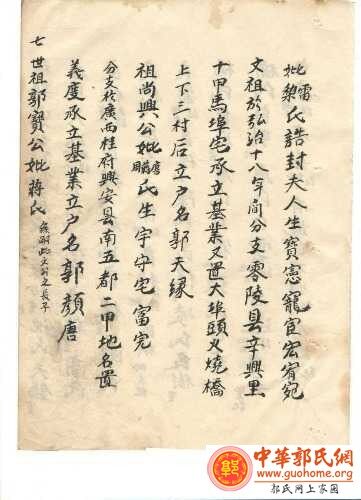 妣雷黎氏誥封夫人生寶憲寵宦宏宥宛
文祖於弘治十八年間分支零陵县辛興里
十甲馬埠宅承立基業又置大埠頭火燒橋
上下三村后立户名郭天缘
祖尚興公妣唐蔣氏生宇守宅富完
分支於廣西桂府興安县南五都二甲地名置
義度承立基業立户名郭顏唐
七世祖郭寶公妣蒋氏
此大公之長子
中華郭氏網
www.guohome.com
郭氏网上家园